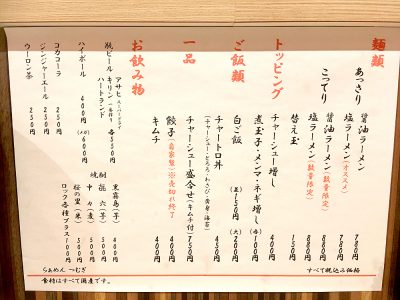 麺類
あっさり 醤油ラーメン 780円
塩ラーメン(オススメ) 780円
こってり 醤油ラーメン 880円
塩ラーメン(数量限定) 880円
トッピング
替え玉 150円
チャーシュー増し 400円
煮玉子・メンマ・ネギ増し 各100円
ご飯類
白ご飯 (小)150円 (大)200円
チャートロ丼 450円
(チャーシュー・とろろ・わさび・青身・海苔)
一品
チャーシュー盛合せ(キムチ付) 750円
餃子(自家製)※売切れ終了 400円
キムチ 400円
お飲み物
瓶ビール アサヒ スーパードライ
キリン 一番搾り 各550円
ハートランド
ハイボール 400円
(メガ)600円
コカコーラ 250円
ジンジャーエール 250円
ウーロン茶 250円
焼酎 黒霧島(芋) 400円
㐂六(芋) 500円
中々(麦) 500円
桜の里(米) 500円
ロック各種プラス100円
らぁめん つむぎ
食材はすべて国産です。
すべて税込み価格